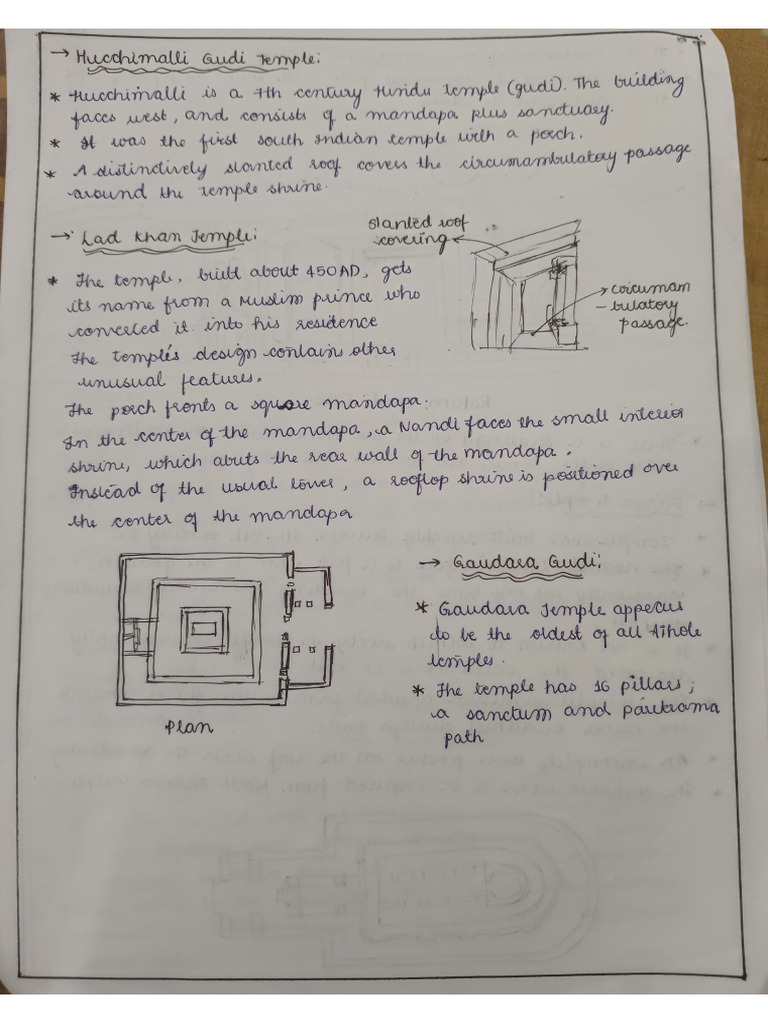 → Hucchimalli Gudi Temple:
* Hucchimalli is a 7th century Hindu temple (gudi). The building
faces west, and consists of a mandapa plus sanctuary.
* It was the first south Indian temple with a porch.
* A distinctively slanted roof covers the circumambulatory passage
around the temple shrine.
→ Lad Khan Temple:
slanted roof
covering
* The temple, built about 450AD, gets
its name from a Muslim prince who
converted it into his residence
The temple's design contain other
unusual features.
circumam
- bulatory
passage.
The porch fronts a square mandapa.
In the center of the mandapa, a Nandi faces the small interior
shrine, which abuts the rear wall of the mandapa.
Instead of the usual tower, a rooftop shrine is positioned over
the center of the mandapa
Plan
→ Gaudara Gudi:
* Gaudara Temple appears
to be the oldest of all Aihole
temples.
* The temple has 16 pillars,
a sanctum and parikrama
path